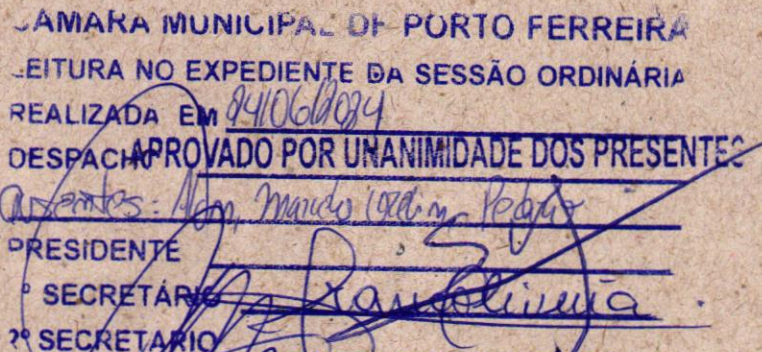 CÂMARA MUNICIPAL DE PORTO FERREIRA
LEITURA NO EXPEDIENTE DA SESSÃO ORDINÁRIA
REALIZADA EM 24/06/2024
DESPACHO APROVADO POR UNANIMIDADE DOS PRESENTES
ausentes: Alan, Marcelo
PRESIDENTE
º SECRETÁRIO Oliveira
2º SECRETARIO